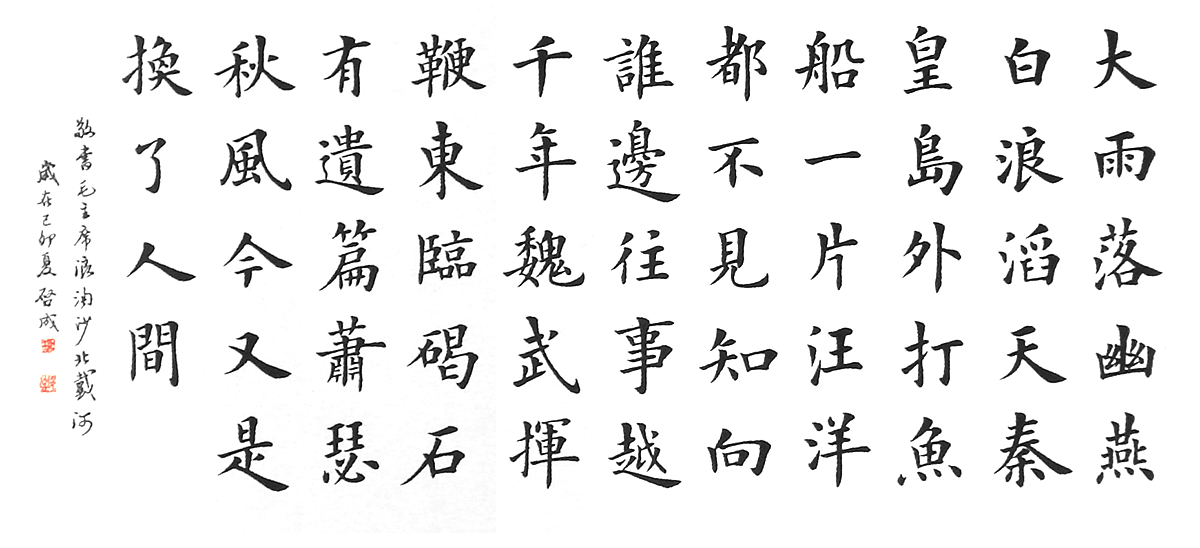 大雨落幽燕
白浪滔天秦
皇島外打魚
船一片汪洋
都不見知向
誰邊往事越
千年魏武揮
鞭東臨碣石
有遺篇蕭瑟
秋風今又是
換了人間
敬書毛主席浪淘沙北戴河
歲在己卯夏啓成